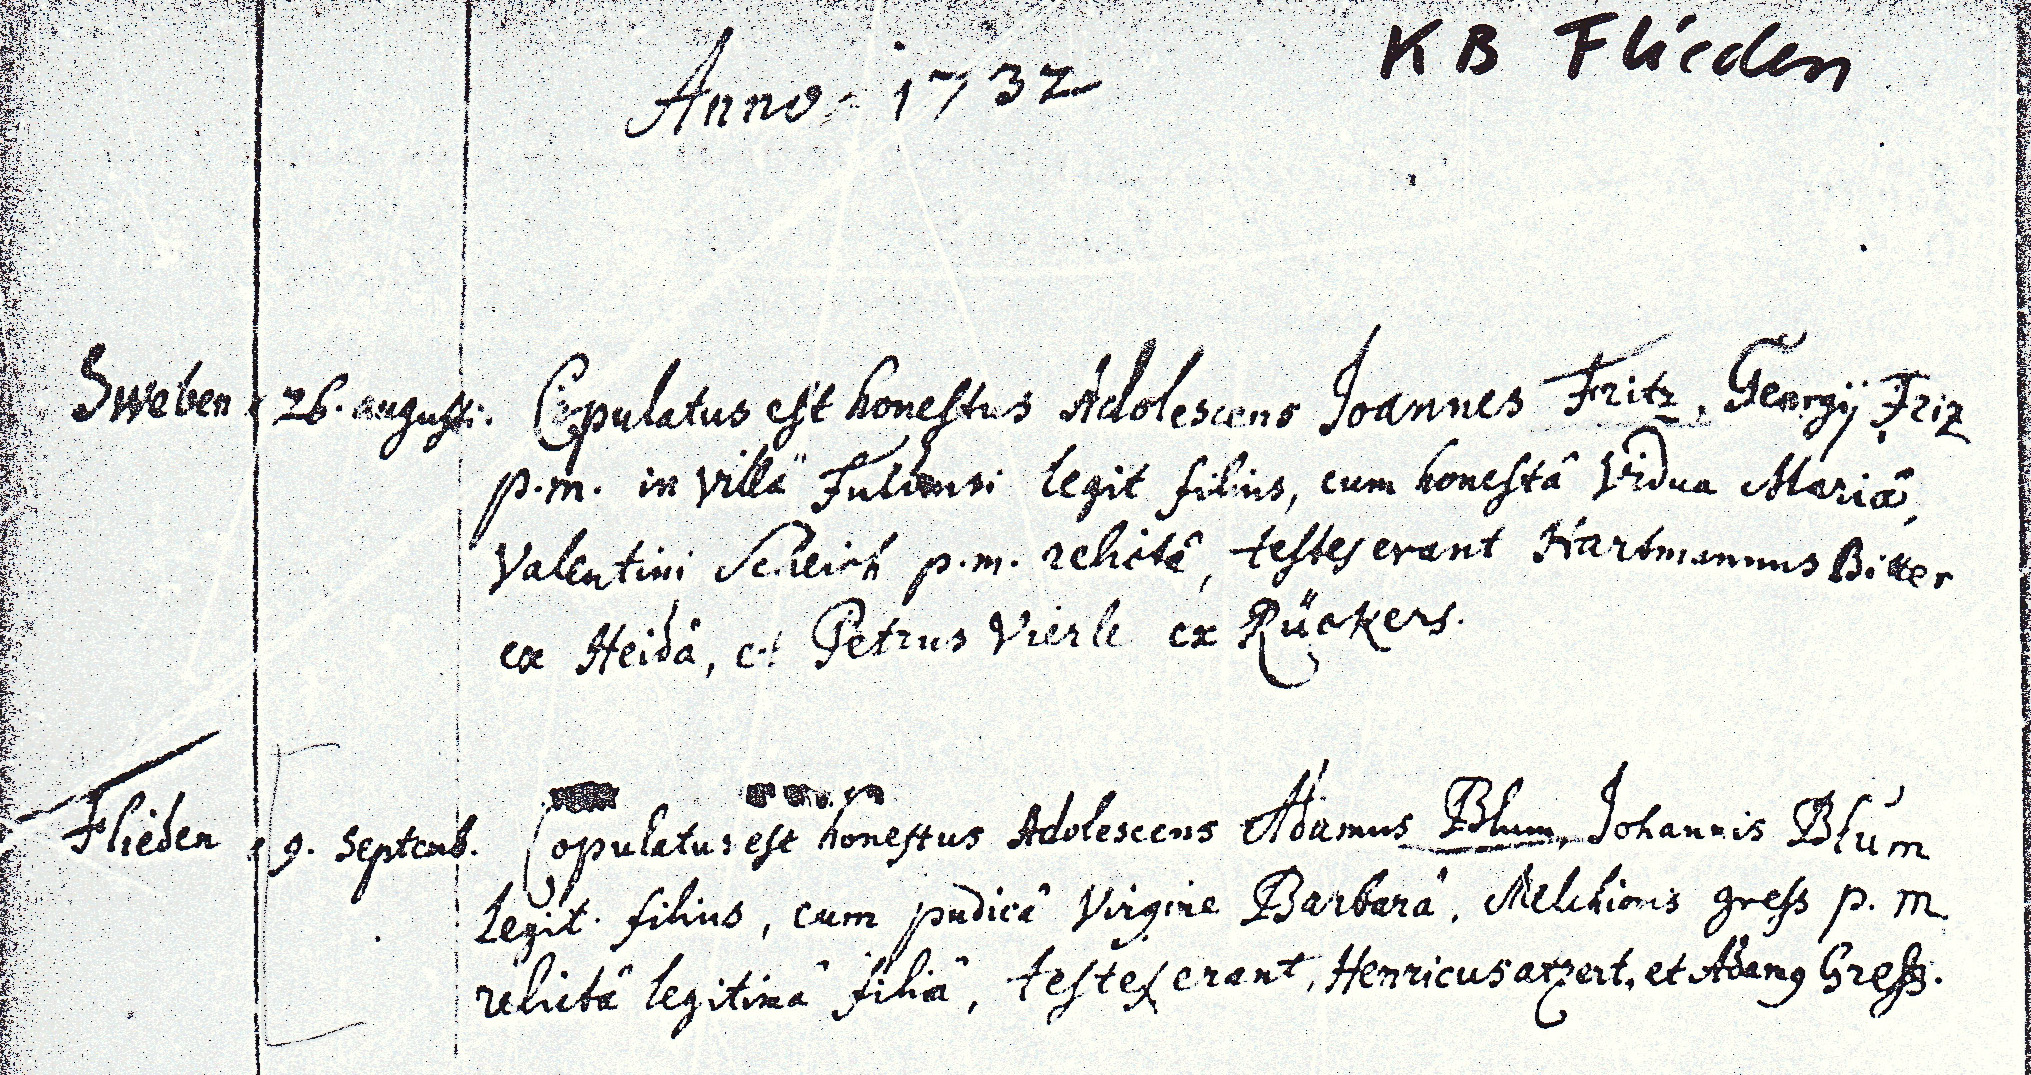 KB Flieden
Anno 1732
Sweben 26. augusti. Copulatus est honestus Adolescens Joannes Fritz, Georgÿ Friz
p.m. in villâ legit filius, cum honestâ Vidua Mariâ,
Valentini p.m. relictâ, testes erant Hartmannus
ex Heidâ, et Petrus Vierle ex Rückers.
Flieden 9. Septemb. Copulatus est honestus Adolescens Adamus Blum, Johannis Blum
legit. filius, cum pudicâ Virgine Barbarâ, Melchioris gress p. m.
relictâ legitimâ filiâ, testes erant, Henricus atzert, et Adamg Gress.